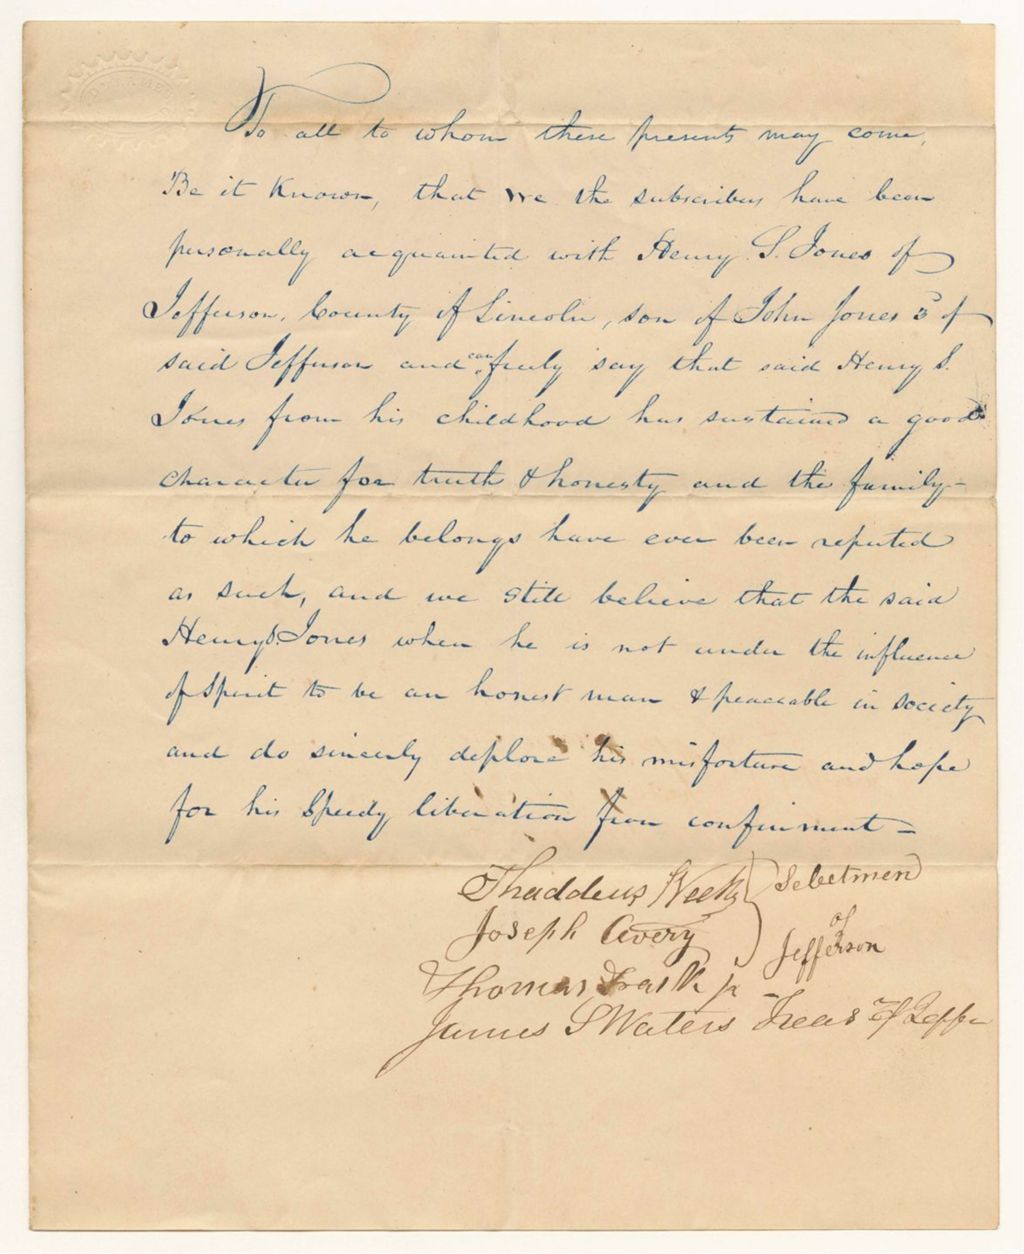 To all to whom these presents may come,
Be it Known, that we the subscribers have been
personally acquainted with Henry S. Jones of
Jefferson, County of Lincoln, son of John Jones 3d of
said Jefferson and can freely say that said Henry S.
Jones from his childhood has sustained a good
character for truth & honesty and the family
to which he belongs have ever been reputed
as such, and we still believe that the said
Henry S. Jones when he is not under the influence
of Spirit to be an honest man & peaceable in society
and do sincerely deplore his misfortune and hope
for his Speedy liberation from confinment
Thaddeus Weeks
Joseph Avery
Selectmen
of
Jefferson
Thomas Trask jr
James S Waters Treas of Jeffn